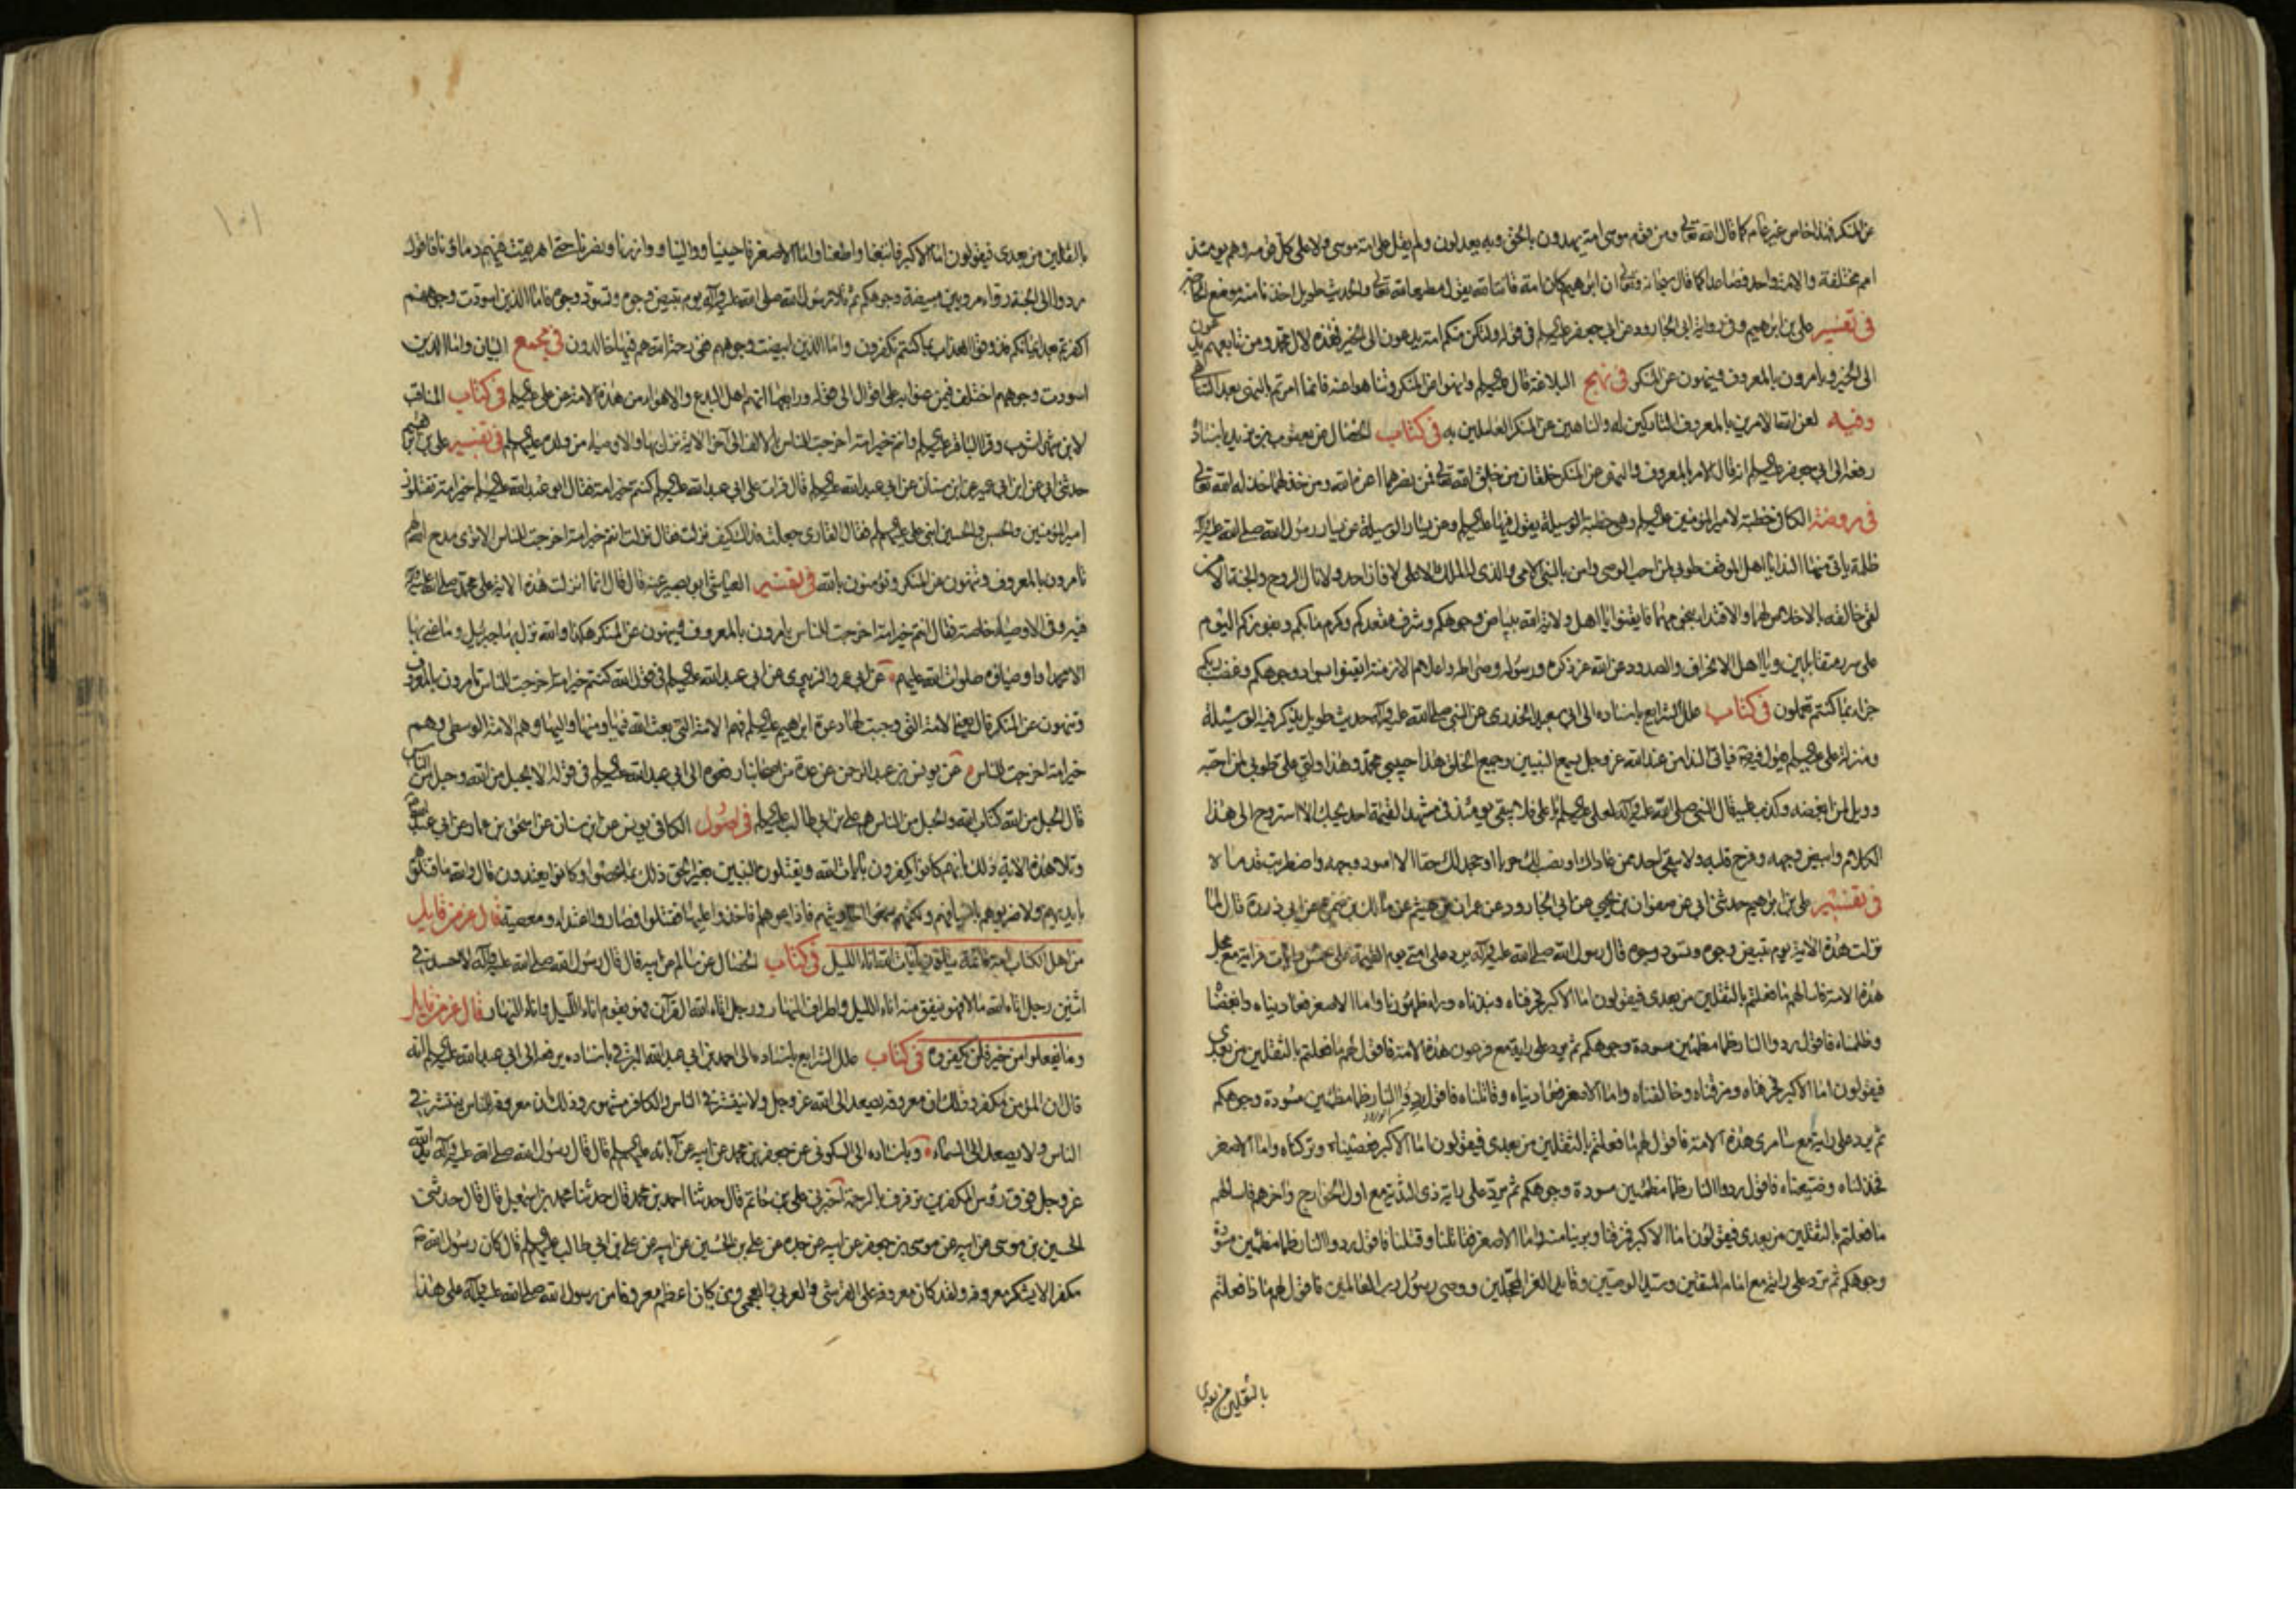 عن المنكر فهذا خاص غير عام كما قال الله تعالى ومن قوم موسى امة يهدون بالحق وبه يعدلون ولم يقل على امة موسى ولا على كل قومه وهم يومئذ
امم مختلفة والامة واحد فصاعدا كما قال سبحانه وتعالى ان ابرهيم كان امة قانتا لله يقول مطيعا لله تعالى والحديث طويل اخذنا منه موضع الحاجة
في تفسير على بن ابرهيم وفي رواية ابي الجارود عن ابي جعفر عليه السلم في قوله ولتكن منكم امة يدعون الى الخير فهذه لال محمد ومن تابعهم يدعون
الى الخير ويامرون بالمعروف وينهون عن المنكر في نهج البلاغة قال عليه السلم وانهوا عن المنكر وتناهوا عنه فانما امرتم بالنهي بعد التناهي
وفيه لعن الله الامرين بالمعروف التاركين له والناهين عن المنكر العاملين به في كتاب الخصال عن يعقوب بن يزيد باسناده
رفعه الى ابي جعفر عليه السلم انه قال الامر بالمعروف والنهي عن المنكر خلقان من خلق الله تعالى فمن نصرهما اعزه الله ومن خذلهما خذله الله تعالى
في روضة الكافي خطبة لامير المؤمنين عليه السلم وهي خطبة الوسيلة يقول فيها عليه السلم وعن يسار الوسيلة عن يسار رسول الله صلى الله عليه وآله
ظلة ياتي منها الندا يا اهل الموقف طوبى لمن احب الوصي وامن بالنبي الامي والذي له الملك الاعلى لا فاز احد ولا نال الروح والجنة الا من
لقي خالقه بالاخلاص لهما والاقتداء بنجومهما فايقنوا يا اهل ولاية الله ببياض وجوهكم وشرف مقعدكم وكرم مابكم وبفوزكم اليوم
على سرر متقابلين ويا اهل الانحراف والصدود عن الله عز ذكره ورسوله وصراطه واعلام الازمنة ايقنوا بسواد وجوهكم وغضب ربكم
جزاء بما كنتم تعملون في كتاب علل الشرايع باسناده الى ابي سعيد الخدري عن النبي صلى الله عليه وآله حديث طويل يذكر فيه الوسيلة
ومنزلة على عليه السلم يقول فيه فياتي النداء من عند الله عز وجل يسمع النبيين وجميع الخلق هذا حبيبي محمد وهذا وليي على طوبى لمن احبه
وويل لمن ابغضه وكذب عليه قال النبي صلى الله عليه وآله لعلى عليه السلم يا على فلا يبقى يومئذ في مشهد القيمة احد يحبك الا استروح الى هذا
الكلام وابيض وجهه وفرح قلبه ولا يبقى احد ممن عاداك او نصب لك حربا او جحد لك حقا الا اسود وجهه واضطربت قدماه
في تفسير على بن ابرهيم حدثني ابي عن صفوان بن يحيى عن ابي الجارود عن عمران بن هيثم عن مالك بن ضمرة عن ابي ذر ره قال لما
نزلت هذه الاية يوم تبيض وجوه وتسود وجوه قال رسول الله صلى الله عليه وآله يرد على امتي يوم القيمة على خمس رايات فراية مع عجل
هذه الامة فاسالهم ما فعلتم بالثقلين من بعدي فيقولون اما الاكبر فحرفناه ونبذناه وراء ظهورنا واما الاصغر فعاديناه وابغضناه
وظلمناه فاقول ردوا النار ظماء مظمئين مسودة وجوهكم ثم يرد على راية مع فرعون هذه الامة فاقول لهم ما فعلتم بالثقلين من بعدي
فيقولون اما الاكبر فحرفناه ومزقناه وخالفناه واما الاصغر فعاديناه وقاتلناه فاقول ردوا النار ظماء مظمئين مسودة وجوهكم
ثم يرد على راية مع سامري هذه الامة فاقول لهم ما فعلتم بالثقلين من بعدي فيقولون اما الاكبر فعصيناه وتركناه واما الاصغر
فخذلناه وضيعناه فاقول ردوا النار ظماء مظمئين مسودة وجوهكم ثم يرد على راية ذي الثدية مع اول الخوارج واخرهم فاسالهم
ما فعلتم بالثقلين من بعدي فيقولون اما الاكبر فمزقنا وبرينا منه واما الاصغر فقاتلنا وقتلنا فاقول ردوا النار ظماء مظمئين مسودة
وجوهكم ثم ترد على راية مع امام المتقين وسيد الوصيين وقايد الغر المحجلين ووصي رسول رب العالمين فاقول لهم ماذا فعلتم
بالثقلين من بعدي
١٠١
بالثقلين من بعدي فيقولون اما الاكبر فاتبعنا واطعنا واما الاصغر فاحببنا ووالينا ووازرنا ونصرنا حتى اهريقت فيهم دماؤنا فاقول
ردوا الى الجنة رواء مرويين مبيضة وجوهكم ثم تلا رسول الله صلى الله عليه وآله يوم تبيض وجوه وتسود وجوه فاما الذين اسودت وجوههم
اكفرتم بعد ايمانكم فذوقوا العذاب بما كنتم تكفرون واما الذين ابيضت وجوههم ففي رحمة الله هم فيها خالدون في مجمع البيان واما الذين
اسودت وجوههم اختلف فيمن عنوا به على اقوال الى قوله ورابعها انهم اهل البدع والاهواء من هذه الامة عن على عليه السلم في كتاب المناقب
لابن شهراشوب وقرا الباقر عليه السلم وانتم خير امة اخرجت للناس بالالف الى آخر الاية نزل بها والاوصياء من ولده عليهم السلم في تفسير على بن ابرهيم
حدثني ابي عن ابن ابي عمير عن ابن سنان عن ابي عبد الله عليه السلم قال قرات على ابي عبد الله عليه السلم كنتم خير امة فقال ابو عبد الله عليه السلم خير امة تقتلون
امير المؤمنين والحسن والحسين ابني على عليهم السلم فقال القاري جعلت فداك كيف نزلت فقال نزلت انتم خير امة اخرجت للناس الا ترى مدح الله لهم
تامرون بالمعروف وتنهون عن المنكر وتؤمنون بالله في تفسير العياشي ابي بصير عنه قال قال انما انزلت هذه الاية على محمد صلى الله عليه وآله
فيه وفي الاوصياء خاصة فقال انتم خير امة اخرجت للناس تامرون بالمعروف وتنهون عن المنكر هكذا والله نزل بها جبريل وما عنى بها
الا محمدا واوصيائه صلوات الله عليهم عن ابي عمرو الزبيري عن ابي عبد الله عليه السلم في قول الله كنتم خير امة اخرجت للناس تامرون بالمعروف
وتنهون عن المنكر قال يعني الامة التي وجبت لها دعوة ابرهيم عليه السلم فهم الامة التي بعث الله فيها ومنها واليها وهم الامة الوسطى وهم
خير امة اخرجت للناس عن يونس بن عبد الرحمن عن عدة من اصحابنا رفعوه الى ابي عبد الله عليه السلم في قوله الا بحبل من الله وحبل من الناس
قال الحبل من الله كتاب الله والحبل من الناس هو على بن ابي طالب عليه السلم في اصول الكافي يونس عن ابن سنان عن اسحق بن عمار عن ابي عبد الله
وتلا هذه الاية ذلك بانهم كانوا يكفرون بآيات الله ويقتلون النبيين بغير الحق ذلك بما عصوا وكانوا يعتدون قال والله ما قتلوهم
بايديهم ولا ضربوهم باسيافهم ولكنهم سمعوا احاديثهم فاذاعوها فاخذوا عليها فقتلوا فصار قتلا واعتداء ومعصية قال عز من قايل
من اهل الكتاب امة قائمة يتلون آيات الله اناء الليل في كتاب الخصال عن سالم عن ابيه قال قال رسول الله صلى الله عليه وآله لا حسد الا في
اثنين رجل اتاه الله مالا فهو ينفق منه اناء الليل واطراف النهار ورجل اتاه الله القرآن فهو يقوم اناء الليل واناء النهار قال عز من قايل
وما يفعلوا من خير فلن يكفروه في كتاب علل الشرايع باسناده الى احمد بن ابي عبد الله البرقي باسناده يرفعه الى ابي عبد الله عليه السلم انه
قال ان المؤمن مكفر وذلك ان معروفه يصعد الى الله عز وجل ولا ينتشر في الناس والكافر مشهور وذلك ان معروفه للناس ينتشر في
الناس ولا يصعد الى السماء وباسناده الى السكوني عن جعفر بن محمد عن ابيه عن آبائه عليهم السلم قال قال رسول الله صلى الله عليه وآله يد الله
عز وجل فوق رؤس المكفرين ترفرف بالرحمة اخبرني على بن حاتم قال حدثنا احمد بن محمد قال حدثنا محمد بن اسمعيل قال قال حدثني
الحسين بن موسى عن ابيه عن موسى بن جعفر عن ابيه عن جده عن على بن الحسين عن ابيه عن على بن ابي طالب عليهم السلم قال كان رسول الله ص
مكفرا لا يشكر معروفه ولقد كان معروفه على القرشي والعربي والعجمي ومن كان اعظم معروفا من رسول الله صلى الله عليه وآله على هذا